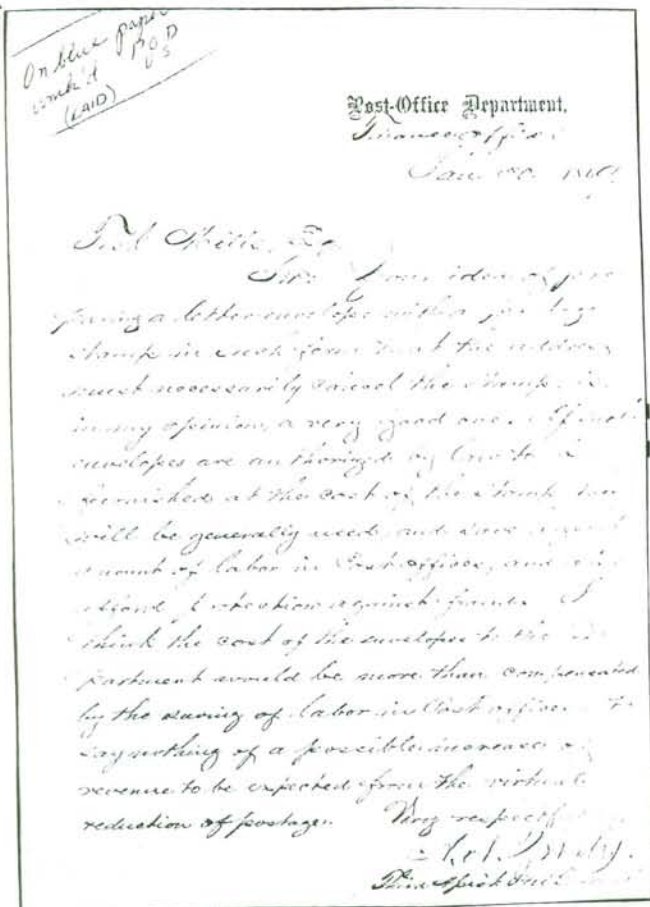 On blue paper
wmk'd P O D
U S
(LAID)
Post-Office Department,
Finance Office
Jan.
Sir: Your idea of pre
paring a letter envelope with a postage
stamp in such form that the address
must necessarily cancel the stamp, is
in my opinion, a very good one. If such
envelopes are authorized by law to be
furnished at the cost of the stamp
will be generally used, and save a great
amount of labor in Post offices, and
afford protection against frauds. I
think the cost of the envelopes to the De
partment would be more than compensated
by the saving of labor in Post offices to
say nothing of a possible increase of
revenue to be expected from the virtual
reduction of postage. Very respectf
Third Asst